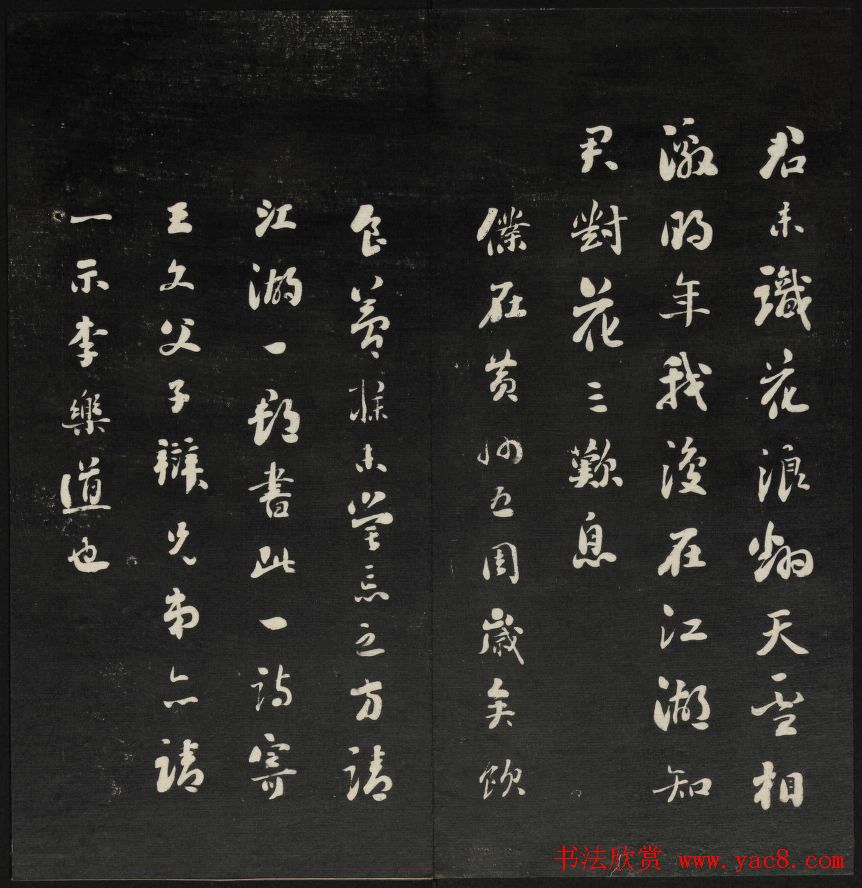 君未識花浪翻天雪相
激明年我復在江湖知
君對花三歎息
僕在黃州五周歲矣飲
食夢寐未嘗忘之方請
江湖一郡書此一詩寄
王文父子辯兄弟亦請
一示李樂道也
书法欣赏 www.yac8.com